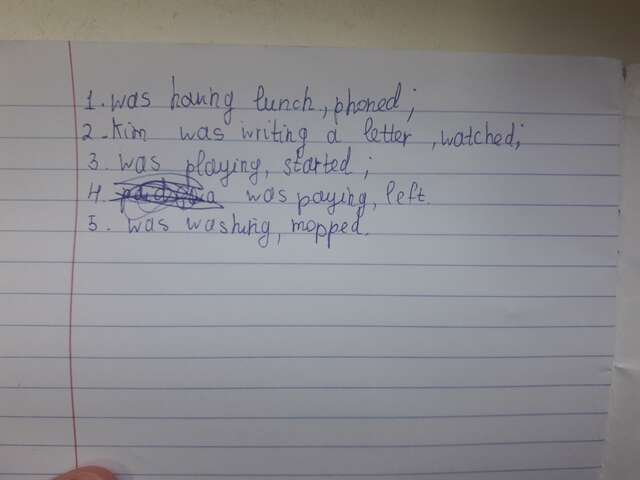 1. was having lunch, phoned;
2. Kim was writing a letter, watched;
3. was playing, started;
4. was paying, left.
5. was washing, mopped.